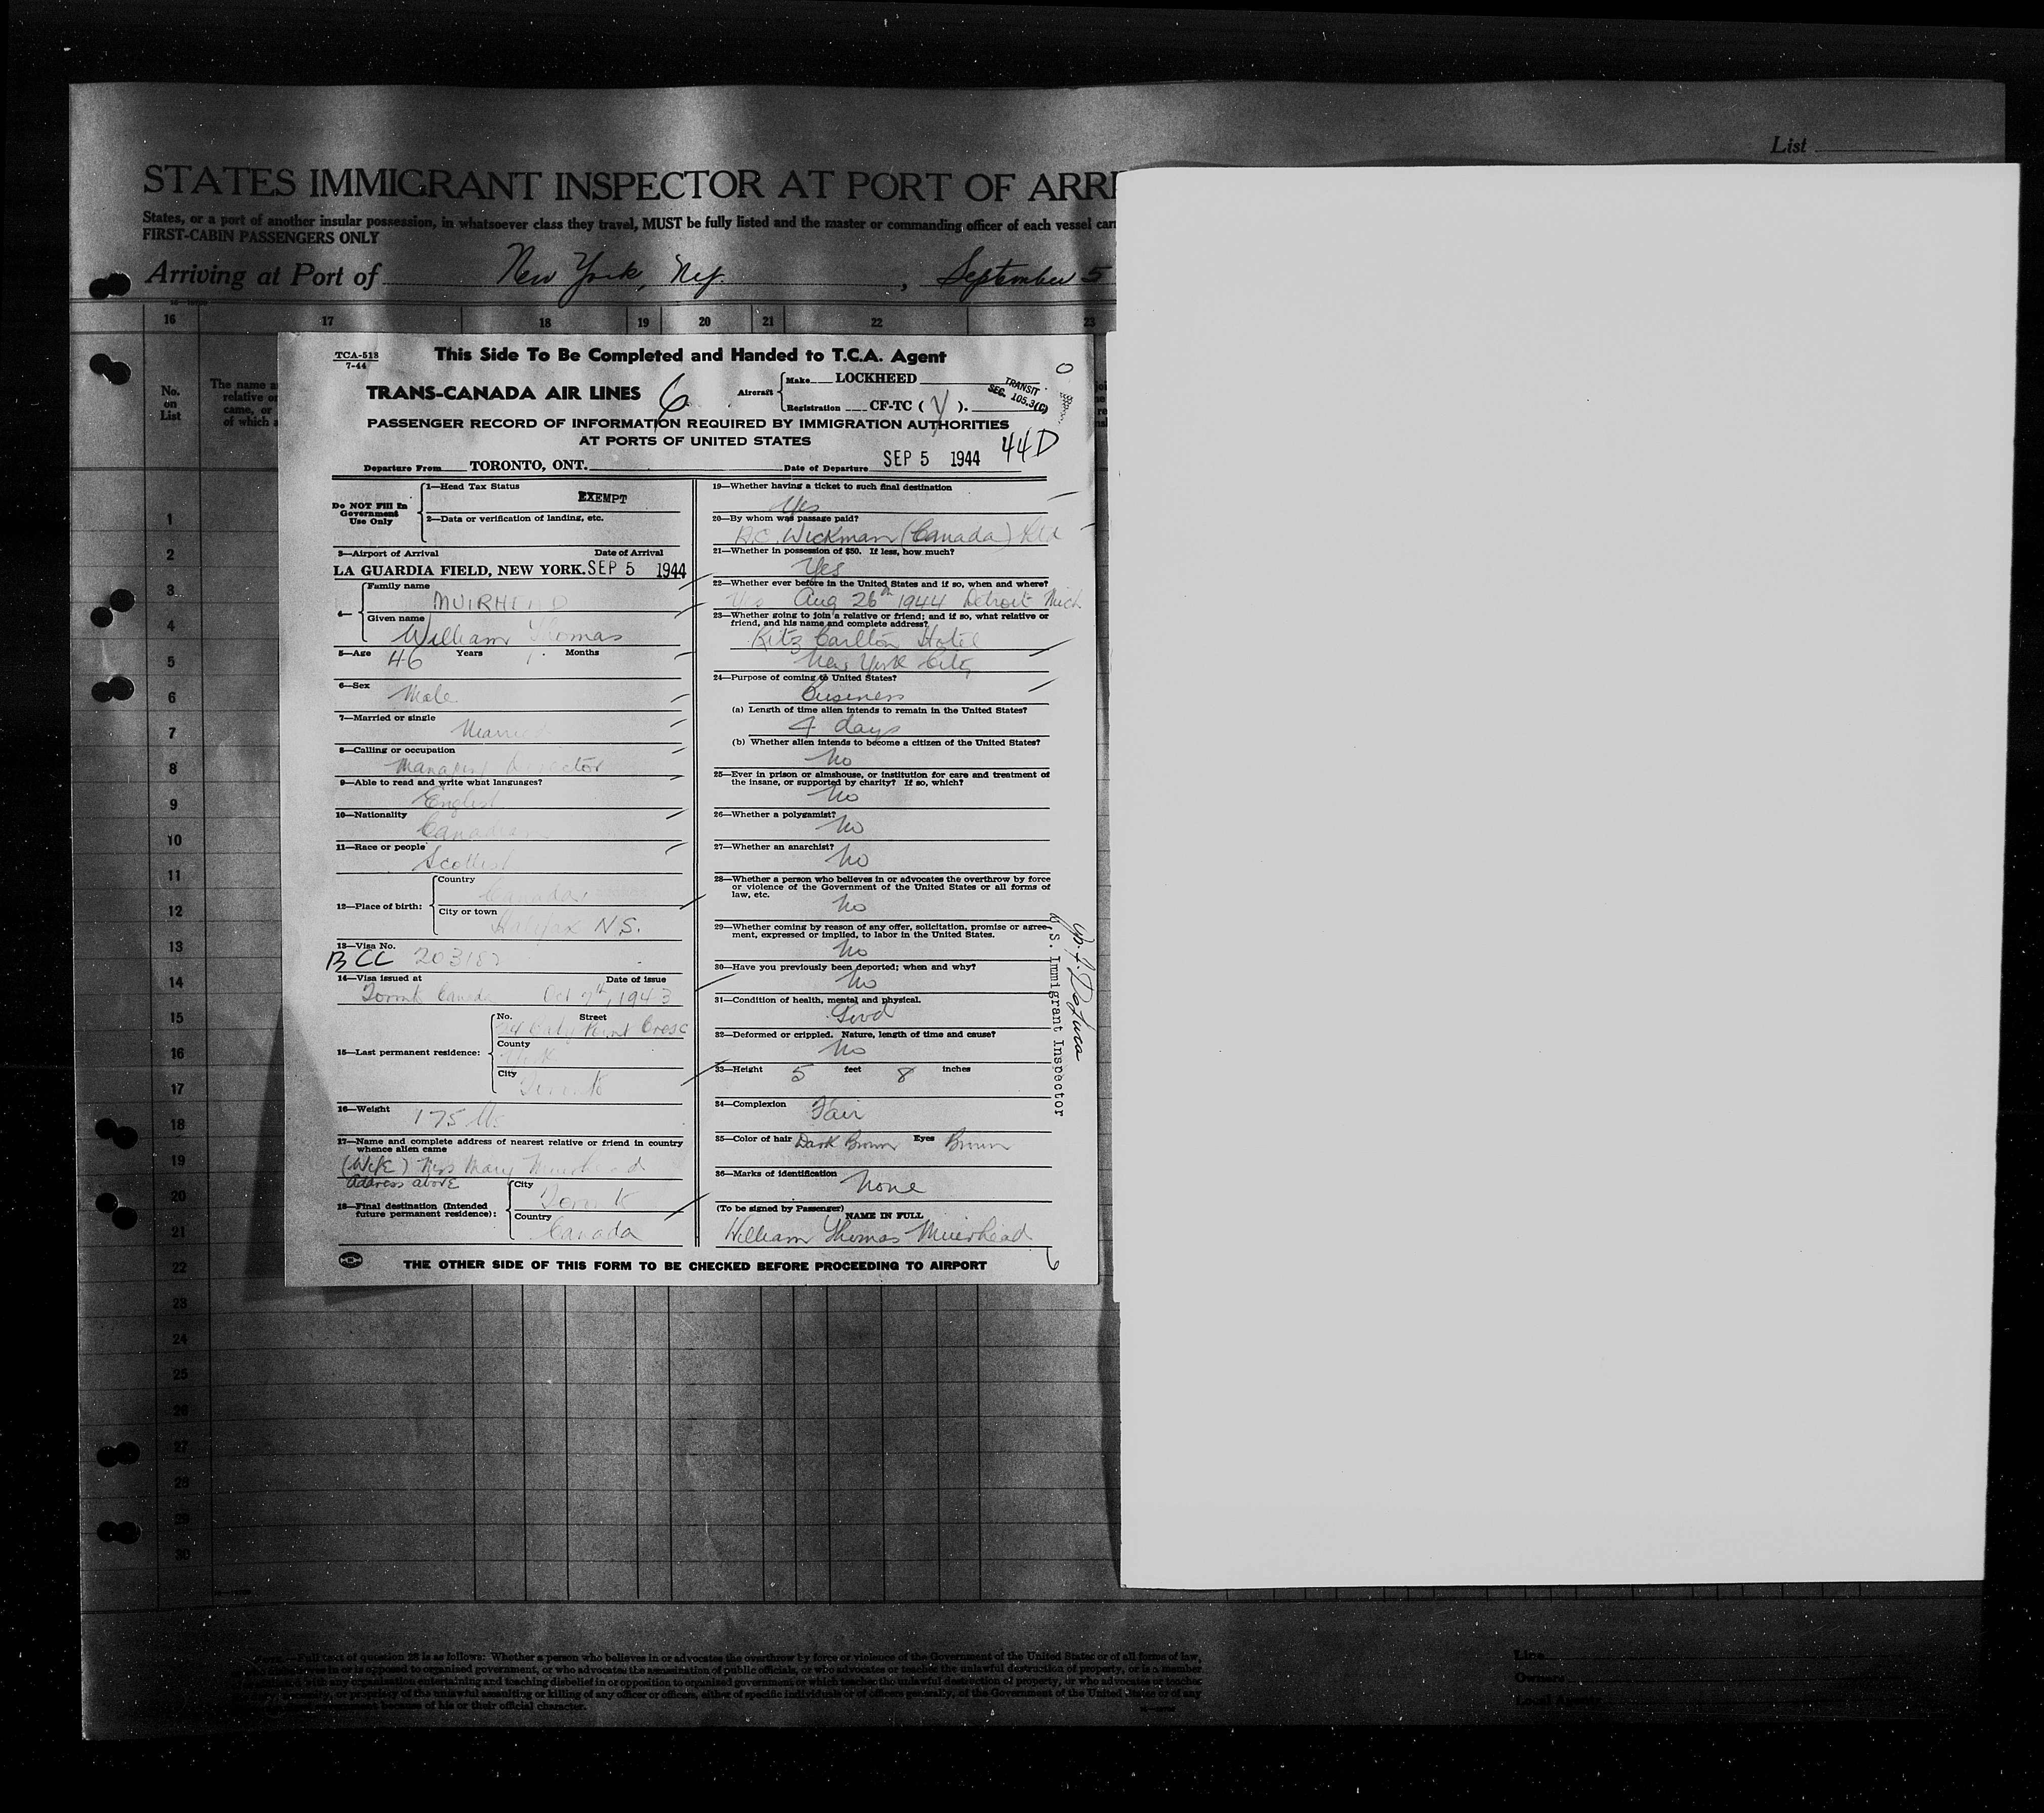 List
STATES IMMIGRANT INSPECTOR AT PORT OF ARRI
States, or a port of another insular possession, in whatsoever class they travel, MUST be fully listed and the master or commanding officer of each vessel carr
FIRST-CABIN PASSENGERS ONLY
Arriving at Port of New York, N.Y. , September 5
16 17 18 19 20 21 22 23
No. on List
The name a
relative or
came, or
of which a
TCA-518
7-44
This Side To Be Completed and Handed to T.C.A. Agent
TRANS-CANADA AIR LINES 6
Aircraft Make LOCKHEED
Registration CF-TC ( Y ).
TRANSIT
SEC. 105.3(C)
PASSENGER RECORD OF INFORMATION REQUIRED BY IMMIGRATION AUTHORITIES
AT PORTS OF UNITED STATES
44D
Departure From TORONTO, ONT. Date of Departure SEP 5 1944
Do NOT Fill In
Government
Use Only
1—Head Tax Status EXEMPT
2—Data or verification of landing, etc.
3—Airport of Arrival Date of Arrival
LA GUARDIA FIELD, NEW YORK. SEP 5 1944
4— Family name
MUIRHEAD
Given name
William Thomas
5—Age 46 Years 1 Months
6—Sex
Male
7—Married or single
Married
8—Calling or occupation
Managing Director
9—Able to read and write what languages?
English
10—Nationality
Canadian
11—Race or people
Scottish
12—Place of birth:
Country
Canada
City or town
Halifax N.S.
13—Visa No.
BCC 203187
14—Visa issued at Date of issue
Toronto Canada Oct 7th, 1943
15—Last permanent residence:
No. Street
Cresc
County
York
City
Toronto
16—Weight 175 lbs
17—Name and complete address of nearest relative or friend in country
whence alien came
(Wife) Mrs Mary Muirhead
Address above
18—Final destination (Intended
future permanent residence):
City
Toronto
Country
Canada
19—Whether having a ticket to such final destination
Yes
20—By whom was passage paid?
A.C. Wickman (Canada) Ltd
21—Whether in possession of $50. If less, how much?
Yes
22—Whether ever before in the United States and if so, when and where?
Yes Aug 26th 1944 Detroit Mich
23—Whether going to join a relative or friend; and if so, what relative or
friend, and his name and complete address?
Ritz Carlton Hotel
New York City
24—Purpose of coming to United States?
Business
(a) Length of time alien intends to remain in the United States?
4 days
(b) Whether alien intends to become a citizen of the United States?
No
25—Ever in prison or almshouse, or institution for care and treatment of
the insane, or supported by charity? If so, which?
No
26—Whether a polygamist?
No
27—Whether an anarchist?
No
28—Whether a person who believes in or advocates the overthrow by force
or violence of the Government of the United States or all forms of
law, etc.
No
29—Whether coming by reason of any offer, solicitation, promise or agree-
ment, expressed or implied, to labor in the United States.
No
30—Have you previously been deported; when and why?
No
31—Condition of health, mental and physical.
Good
32—Deformed or crippled. Nature, length of time and cause?
No
33—Height 5 feet 8 inches
34—Complexion Fair
35—Color of hair Dark Brown Eyes Brown
36—Marks of identification
None
(To be signed by Passenger)
NAME IN FULL
William Thomas Muirhead
U. S. Immigrant Inspector
THE OTHER SIDE OF THIS FORM TO BE CHECKED BEFORE PROCEEDING TO AIRPORT
1
2
3
4
5
6
7
8
9
10
11
12
13
14
15
16
17
18
19
20
21
22
23
24
25
26
27
28
29
30
Note.—Full text of question 28 is as follows: Whether a person who believes in or advocates the overthrow by force or violence of the Government of the United States or of all forms of law,
or who disbelieves in or is opposed to organized government, or who advocates the assassination of public officials, or who advocates or teaches the unlawful destruction of property, or is a member
of or affiliated with any organization entertaining and teaching disbelief in or opposition to organized government or which teaches the unlawful destruction of property, or who advocates or teaches
the duty, necessity, or propriety of the unlawful assaulting or killing of any officer or officers, either of specific individuals or of officers generally, of the Government of the United States or of any
other organized government because of his or their official character.
Line
Owners
Local Agents